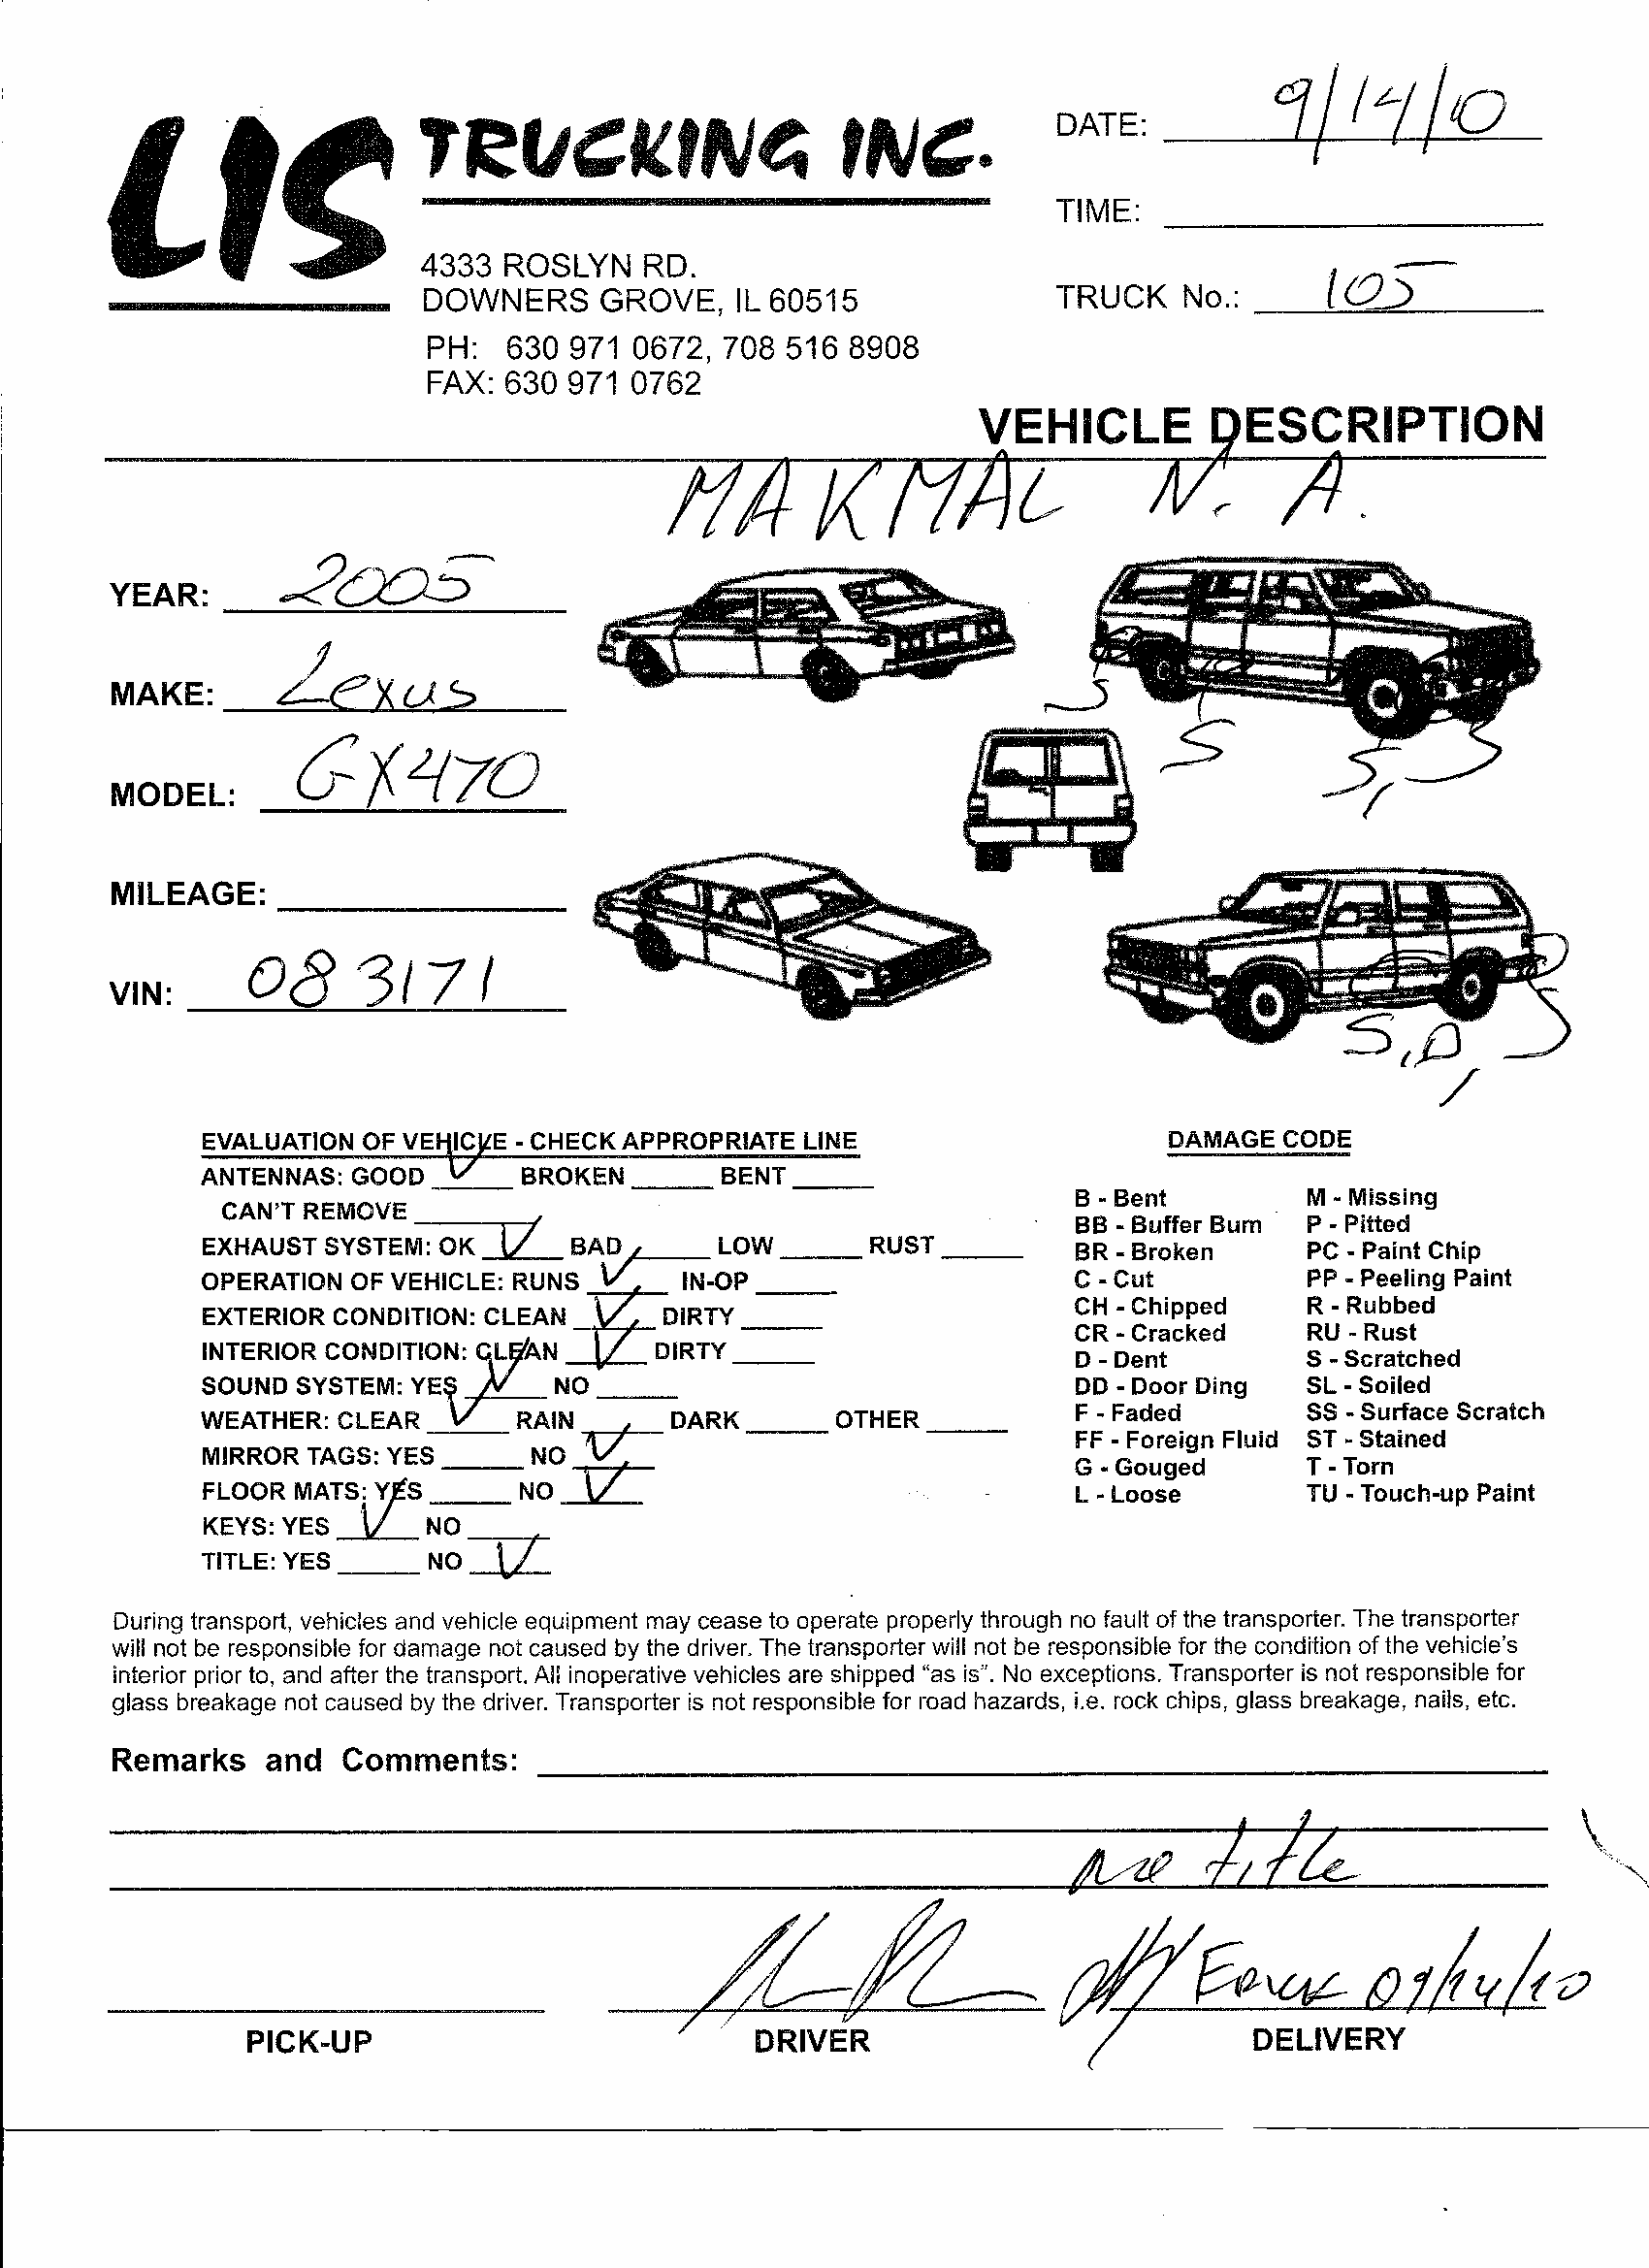 LIS TRUCKING INC.
DATE: 9/14/10
TIME:
4333 ROSLYN RD.
DOWNERS GROVE, IL 60515
TRUCK No.: 105
PH: 630 971 0672, 708 516 8908
FAX: 630 971 0762
VEHICLE DESCRIPTION
MAKMAL N. A.
YEAR: 2005
MAKE: Lexus
S
S
S, S
MODEL: GX470
MILEAGE:
VIN: 083171
S, D, S
EVALUATION OF VEHICLE - CHECK APPROPRIATE LINE
ANTENNAS: GOOD ✓ BROKEN BENT
CAN'T REMOVE
EXHAUST SYSTEM: OK ✓ BAD LOW RUST
OPERATION OF VEHICLE: RUNS ✓ IN-OP
EXTERIOR CONDITION: CLEAN ✓ DIRTY
INTERIOR CONDITION: CLEAN ✓ DIRTY
SOUND SYSTEM: YES ✓ NO
WEATHER: CLEAR ✓ RAIN DARK OTHER
MIRROR TAGS: YES NO ✓
FLOOR MATS: YES NO ✓
KEYS: YES ✓ NO
TITLE: YES NO ✓
DAMAGE CODE
B - Bent M - Missing
BB - Buffer Bum P - Pitted
BR - Broken PC - Paint Chip
C - Cut PP - Peeling Paint
CH - Chipped R - Rubbed
CR - Cracked RU - Rust
D - Dent S - Scratched
DD - Door Ding SL - Soiled
F - Faded SS - Surface Scratch
FF - Foreign Fluid ST - Stained
G - Gouged T - Torn
L - Loose TU - Touch-up Paint
During transport, vehicles and vehicle equipment may cease to operate properly through no fault of the transporter. The transporter
will not be responsible for damage not caused by the driver. The transporter will not be responsible for the condition of the vehicle's
interior prior to, and after the transport. All inoperative vehicles are shipped "as is". No exceptions. Transporter is not responsible for
glass breakage not caused by the driver. Transporter is not responsible for road hazards, i.e. rock chips, glass breakage, nails, etc.
Remarks and Comments:
no title
09/14/10
PICK-UP DRIVER DELIVERY